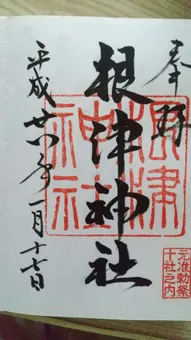 奉拝
根津神社
平成廿八年一月十七日
根津
神社
元准勅祭
十社之内